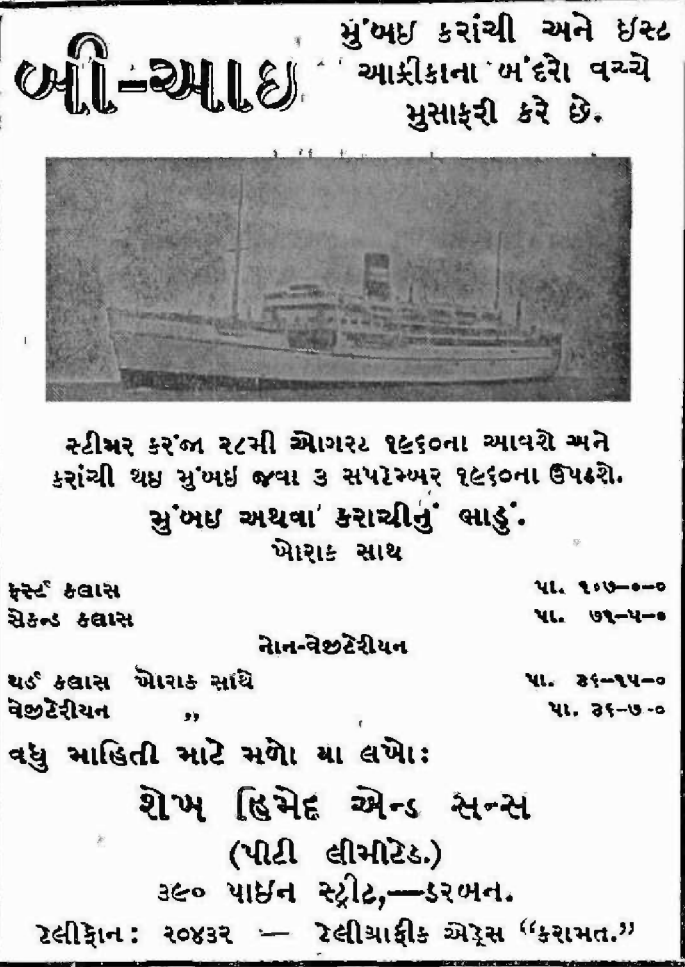 બી-આઇ
મુંબઇ કરાંચી અને ઇસ્ટ
આફ્રીકાના બંદરો વચ્ચે
મુસાફરી કરે છે.
સ્ટીમર કરંજા ૨૮મી ઓગસ્ટ ૧૯૬૦ના આવશે અને
કરાંચી થઇ મુંબઇ જવા ૩ સપટેમ્બર ૧૯૬૦ના ઉપઢશે.
મુંબઇ અથવા કરાચીનું ભાડું.
ખોરાક સાથ
ફર્સ્ટ કલાસ પા. ૧૦૭-૦-૦
સેકન્ડ કલાસ પા. ૭૧-૫-૦
નોન-વેજીટેરીયન
થર્ડ કલાસ ખોરાક સાથે પા. ૩૬-૧૫-૦
વેજીટેરીયન ,, પા. ૩૬-૭-૦
વધુ માહિતી માટે મળો યા લખોઃ
શેખ હિમેદ એન્ડ સન્સ
(પીટી લીમીટેડ.)
૩૯૦ પાઇન સ્ટ્રીટ,—ડરબન.
ટેલીફોન: ૨૦૪૩૨ — ટેલીગ્રાફીક એડ્રેસ “કરામત.”